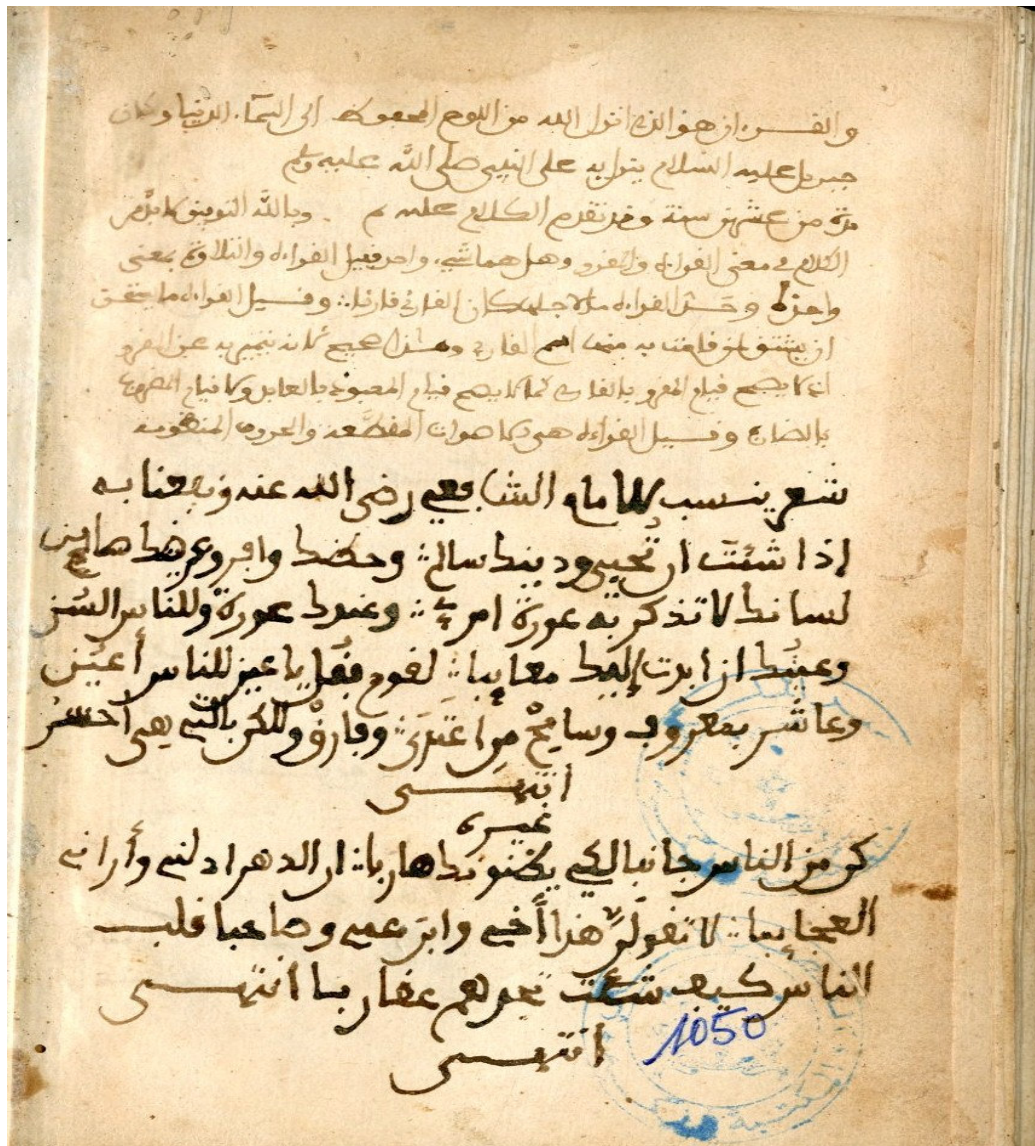 والقرءان هو الذي انزل الله من اللوح المحفوظ الى السماء الدنيا وكان
جبريل عليه السلام ينزل به على النبيى صلى الله عليه وسلم
مدة من عشرين سنة وقد تقدم الكلام عليه وبالله التوفيق
الكلام في معنى القراءة والمقرو وهل هما شيء واحد فقيل القراءة والتلاوة بمعنى
واحد وحد القراءة ما لاجله كان القارئ قارئا وقيل القراءة ما يتحقق
ان يشتق لمن قامت به منها اسم القارئ وهذا صحيح لانه تتميز به عن المقرو
اذ لا يصح قيام المقرو بالقارئ كما لا يصح قيام المعبود بالعابد ولا قيام
بالصانع وقيل القراءة هي الاصوات المقطعه والحروف المنظومه
شعر ينسب للامام الشابعي رضي الله عنه ونبعنا به
إذا شئت ان تحيى ودينك سالم وحظك وافر وعرضك صاين
لسانك لا تذكر به عورة امرئ وعندك عورة وللناس السن
وعينك ان ابدت إليك معايبا لقوم فقل يا عين للناس أعين
وعاشر بمعروف وسامح من اعتدى وفارق ولاكن بالتي هي احسن
انتهــى
غيره
كن من الناس جانبا لكي يظنوك هاربا ان الدهر ادلني وأراني
العجايبا لا تقولن هذا أخي وابن عمي وصاحبا قلب
الناس كيف شئت تجدهم عقاربا انتهــى
انتهــى
1050